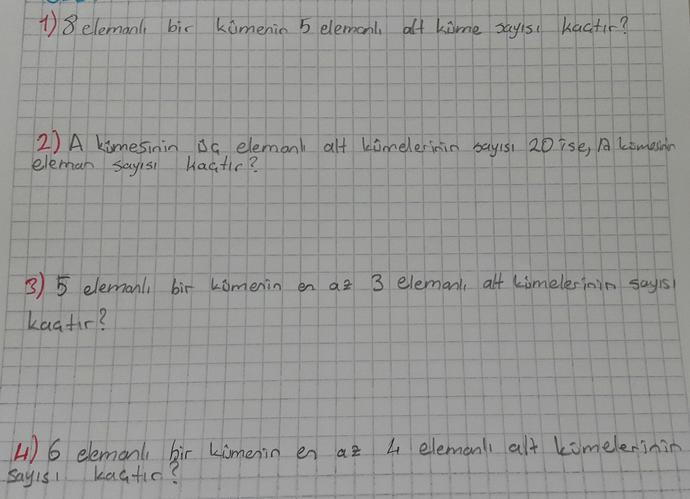 1) 8 elemanlı bir kümenin 5 elemanlı alt küme sayısı kaçtır?
2) A kümesinin üç elemanlı alt kümelerinin sayısı 20 ise, A kümesinin
eleman sayısı kaçtır?
3) 5 elemanlı bir kümenin en az 3 elemanlı alt kümelerinin sayısı
kaçtır?
4) 6 elemanlı bir kümenin en az 4 elemanlı alt kümelerinin
sayısı kaçtır?